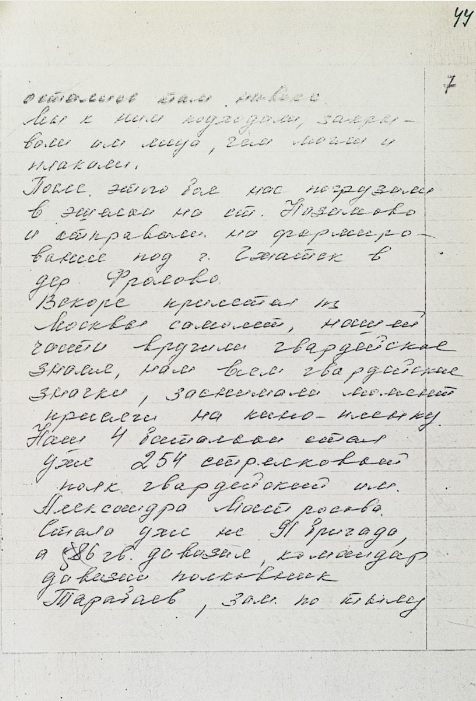 44
7
остались там навек.
Мы к ним подходили, закры-
вали им лица, чем могли и
плакали.
После этого боя нас погрузили
в эшалон на ст. Назимово
и отправили на формиро-
вание под г. Гжатск в
дер. Фролово.
Вскоре прилетел из
Москвы самолет, нашей
части вручили гвардейское
знамя, нам всем гвардейские
значки, заснимали момент
присяги на кино-пленку.
Наш 4 батальон стал
уже 254 стрелковый
полк гвардейский им.
Александра Матросова.
Стала уже не 91 бригада,
а 56 гв. дивизия, командир
дивизии полковник
, зам. по тылу